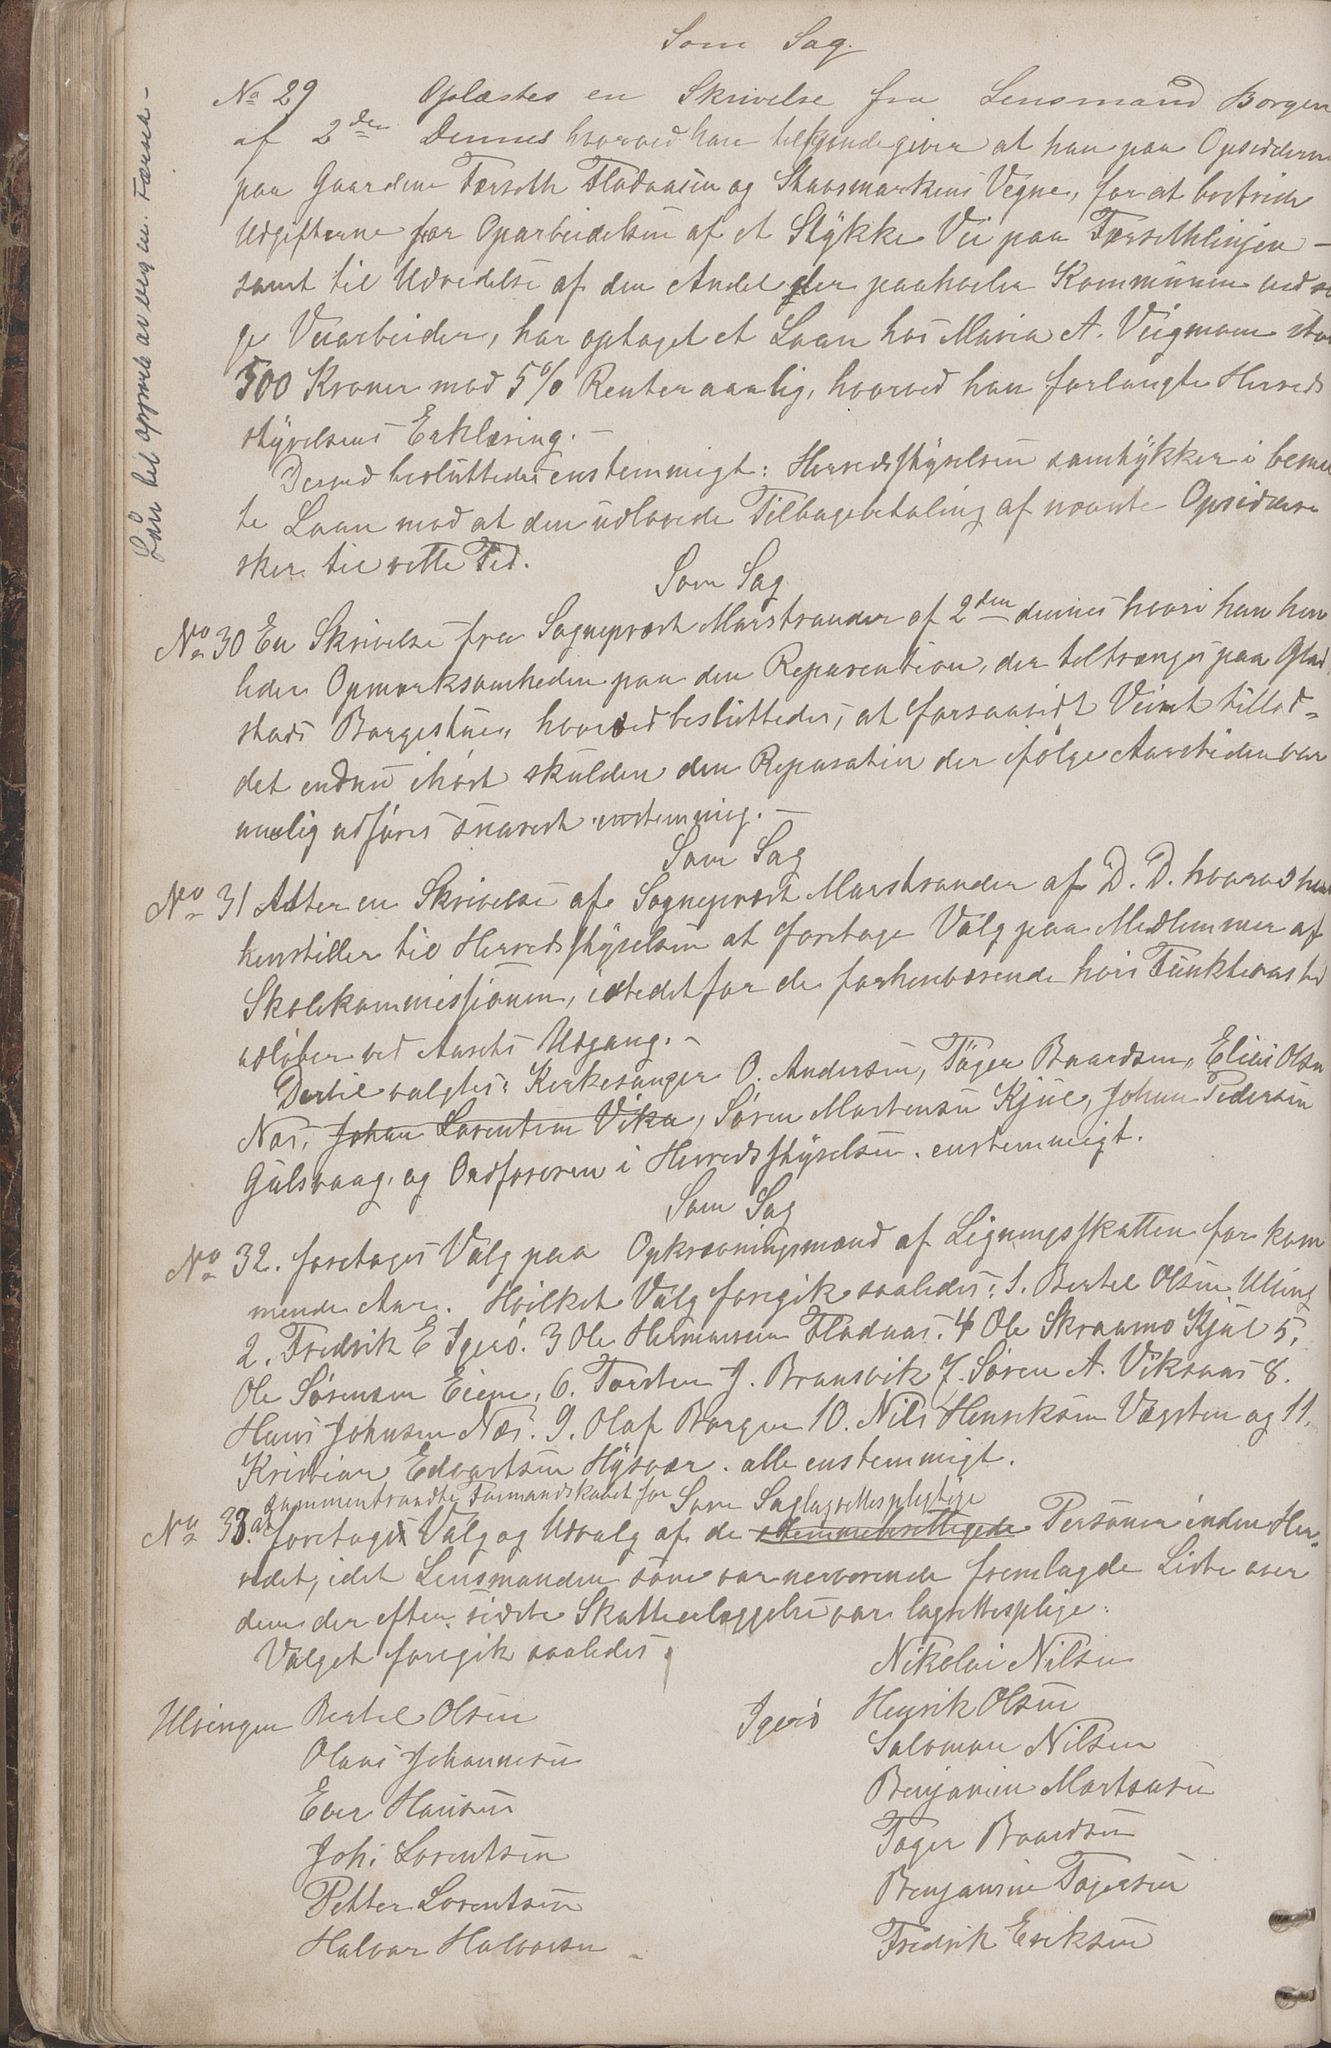 Som Sag.
No 29 Oplæstes en Skrivelse fra Lensmand Borgen
af 2den Dennes hvorved han tilkjendegiver at han paa Opsiddernes
paa Gaardene Færseth Fladaasen og Vegne, for at bestride
Udgifterne for Oparbeidelsen af et Stykke Vei paa Færsethlinjen –
samt til Udredelse af den Andel der paahviler Kommunen ved
ge Veiarbeider, har optaget et Laan hos Maria A. Veigmoen stor
500 Kroner mod 5% Renter aarlig, hvorved han forlangte Herreds
styrelsens Erklæring. –
Derved besluttedes enstemmigt: Herredsstyrelsen samtykker i bemel
te Laan mod at den udlovede Tilbagebetaling af nævnte Opsiddere
sker til rette Tid.
Lån til opparb. av veg m. Færset –
Som Sag
No 30 En Skrivelse fra Sogneprest Marstrander af 2den dennes hvori han hen
leder Opmærksomheden paa den Reparation, der tiltrænges paa Glad
stads Borgestue, hvorved besluttedes, at forsaavidt Veiret tillod=
det endnu ihøst skulden den Reparation der ifølge Aarstiden var
mulig udføres snarest enstemmig. –
Som Sag
No 31 Atter en Skrivelse af Sogneprest Marstrander af D. D. hvorved han
henstiller til Herredsstyrelsen at foretage Valg paa Medlemmer af
Skolekommissionen, istedet for de forhenværende hvis Funktionstid
udløber ved Aarets Udgang. –
Dertil valgtes: Kirkesanger O. Andersen, Tøger Baardsen, Elias Olsen
Næs, Johan Lorentsen Vika, Søren Mortensen Kjul, Johan Pedersen
Gulsvaag, og Ordføreren i Herredsstyrelsen. enstemmigt.
Som Sag
No 32. foretoges Valg paa Opkrævningsmænd af Ligningsskatten for kom
mende Aar. Hvilket Valg foregik saaledes: 1. Bertel Olsen Ulving
2. Fredrik E Igerø. 3 Ole Hermansen Fladaas. 4 Ole Skraamo Kjul 5.
Ole Sørensen Eiene, 6. Torsten J. Bransvik 7. Søren A. Viksaas 8.
Hans Johnsen Næs. 9. Olaf Borgen 10. Nils Henriksen Vægsten og 11.
Kristian Edvartsen Hysvær. alle enstemmigt.
sammentraadte Formandskabet for Som Sag lagrettespligtige
No 33. at foretage Valg og Udvalg af de stemmeberettigede Personer inden Her=
redet, idet Lensmanden som var nærværende fremlagde Liste over
dem der efter sidste Skatteerlæggelse var lagrettesplige.
Valget foregik saaledes:
Ulvingen Bertel Olsen
Olaus Johannesen
Even Hansen
Johs Lorentsen
Petter Lorentsen
Halvar Halvorsen –
Nikolai Nilsen
Igerø Henrik Olsen
Salomon Nilsen
Benjamin Mortensen
Tøger Baardsen
Benjamin Tøgersen
Fredrik Eriksen